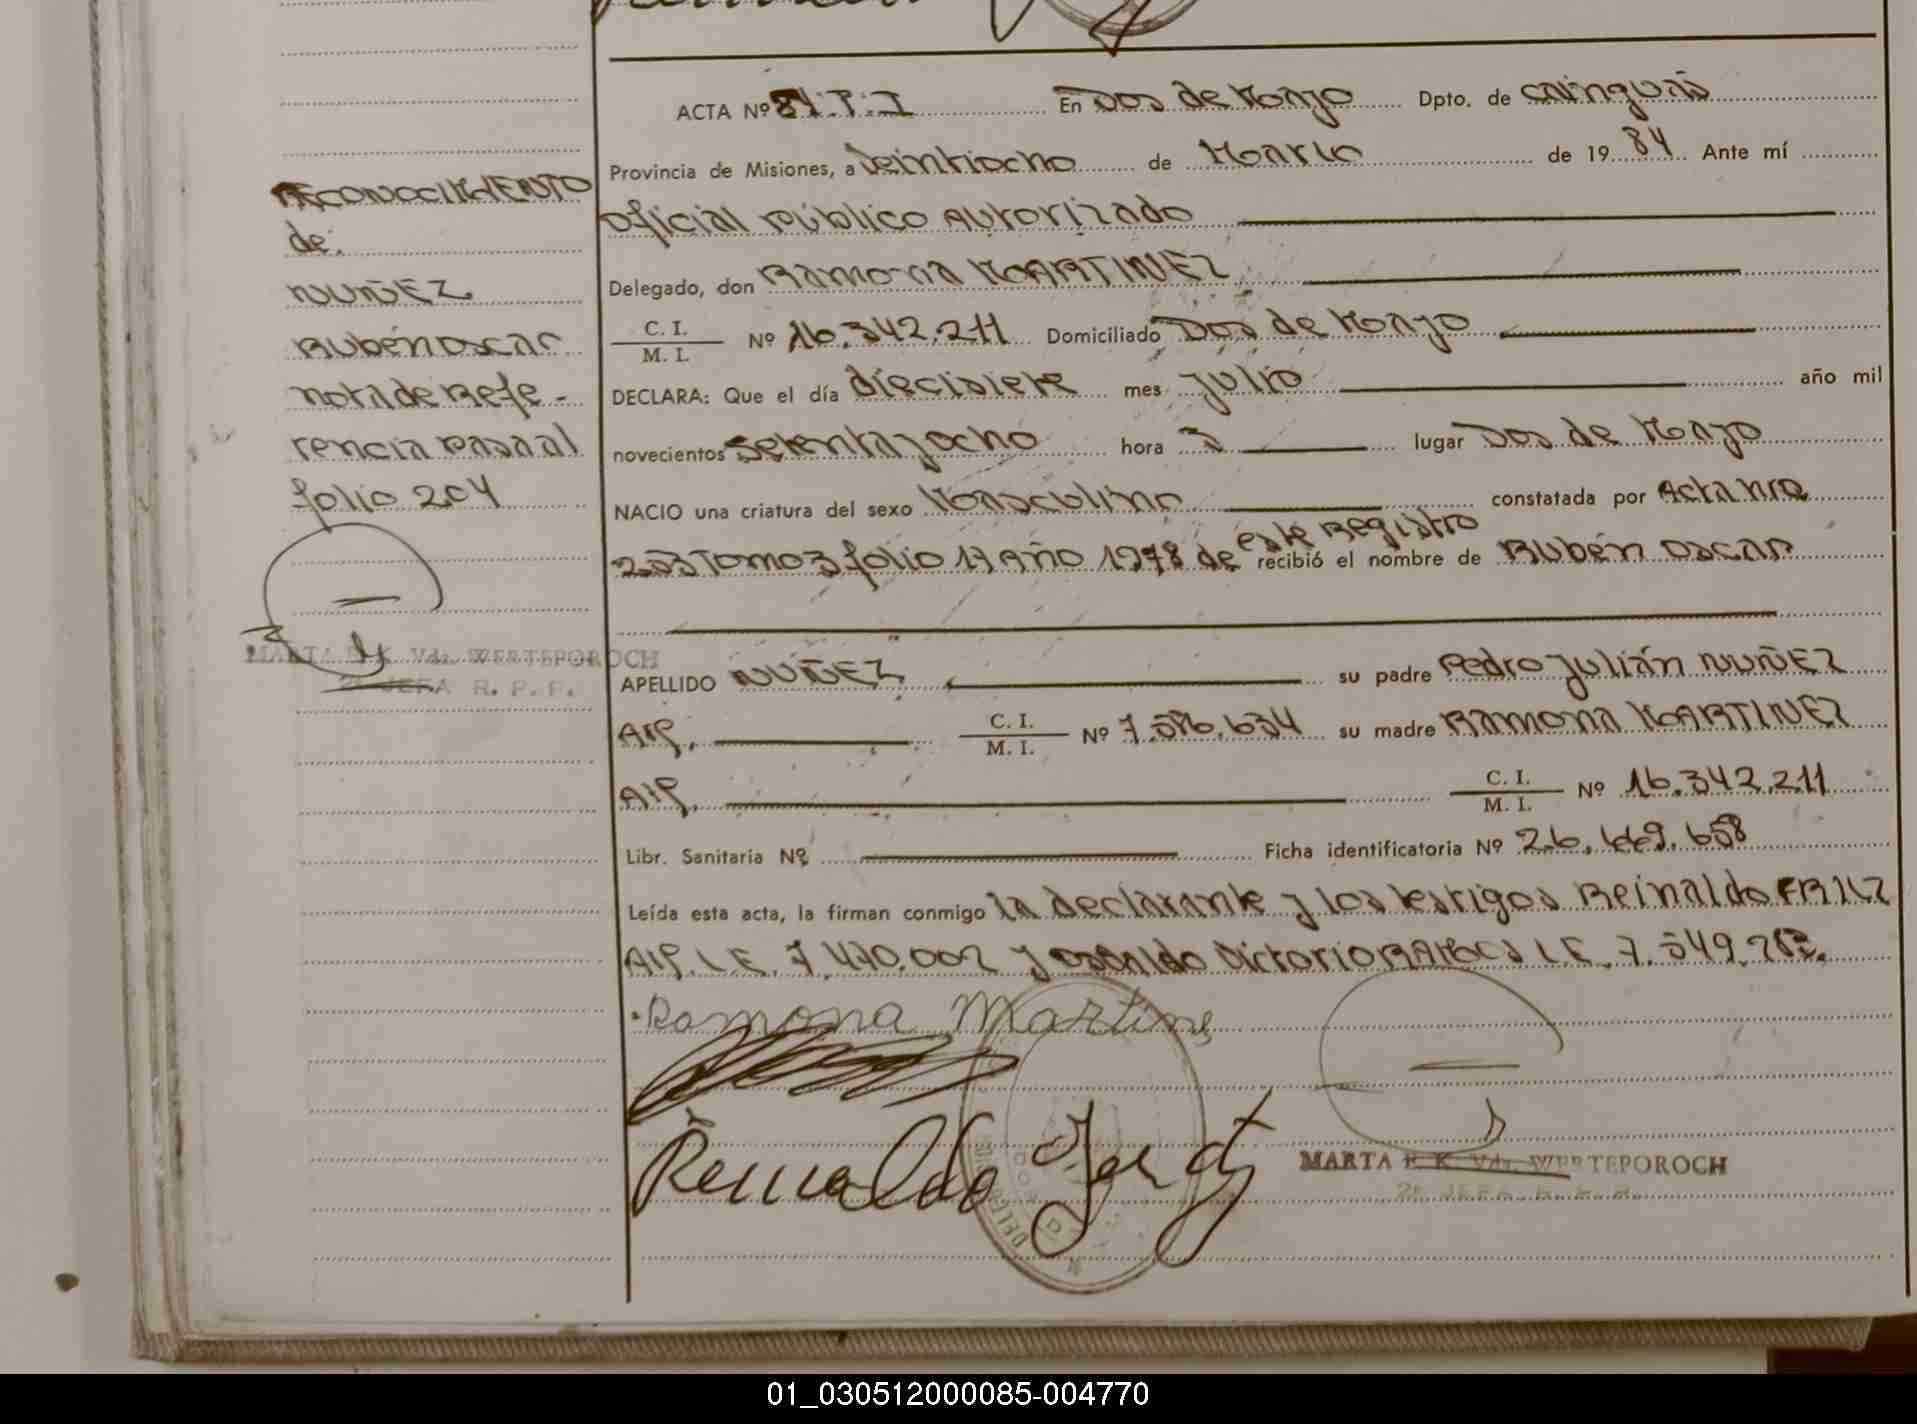 RECONOCIMIENTO
de:
NUÑEZ
Rubén Oscar
nota de Refe-
rencia pasa al
folio 204
MARTA E. K. Vda. WERTEPOROCH
2ª JEFA R. P. P.
ACTA Nº 87.T.I En Dos de Mayo Dpto. de Cainguás
Provincia de Misiones, a Veintiocho de Marzo de 19 84 Ante mí
Oficial Público Autorizado
Delegado, don Ramona MARTINEZ
C. I.
M. I. Nº 16.342.211 Domiciliado Dos de Mayo
DECLARA: Que el día diecisiete mes julio año mil
novecientos setenta y ocho hora 3 lugar Dos de Mayo
NACIO una criatura del sexo Masculino constatada por Acta Nro
253 Tomo 3 folio 17 Año 1978 de este Registro recibió el nombre de Rubén Oscar
APELLIDO NUÑEZ su padre Pedro Julián NUÑEZ
Arg. C. I.
M. I. Nº 7.576.634 su madre Ramona MARTINEZ
Arg. C. I.
M. I. Nº 16.342.211
Libr. Sanitaria Nº Ficha identificatoria Nº 26.669.658
Leída esta acta, la firman conmigo la declarante y los testigos Reinaldo
Arg. L.E. 7.470.002 y Osvaldo Victorio RAMOS L.E. 7.549.
Ramona Martines
Reinaldo
MARTA E. K. Vda. WERTEPOROCH
2ª JEFA R. P. P.
01_030512000085-004770